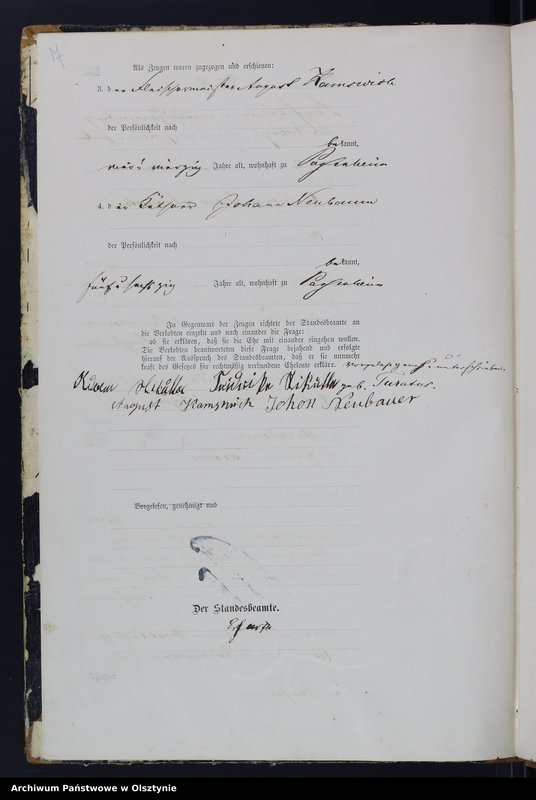 17
Als Zeugen waren zugezogen und erschienen:
3. der Fleischermeister August Kamswich
der Persönlichkeit nach
bekannt,
vierzig Jahre alt, wohnhaft zu Passenheim
4. der Käthner Johann Neubauer
der Persönlichkeit nach
bekannt,
fünfundsechszig Jahre alt, wohnhaft zu Passenheim
In Gegenwart der Zeugen richtete der Standesbeamte an
die Verlobten einzeln und nach einander die Frage:
ob sie erklären, daß sie die Ehe mit einander eingehen wollen.
Die Verlobten beantworteten diese Frage bejahend und erfolgte
hierauf der Ausspruch des Standesbeamten, daß er sie nunmehr
kraft des Gesetzes für rechtmäßig verbundene Eheleute erkläre.
Adam Nikulla Ludwika Nikulla geb.
August Kamswich Johon Neubauer
Vorgelesen, genehmigt und
Der Standesbeamte.
Archiwum Państwowe w Olsztynie